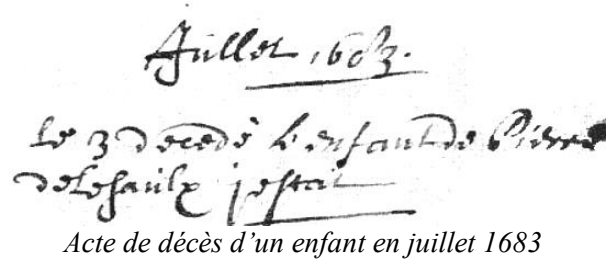 Juillet 1683.
Le 3 decedé l'enfant de Pierre
delesaulx j estait
Acte de décès d'un enfant en juillet 1683